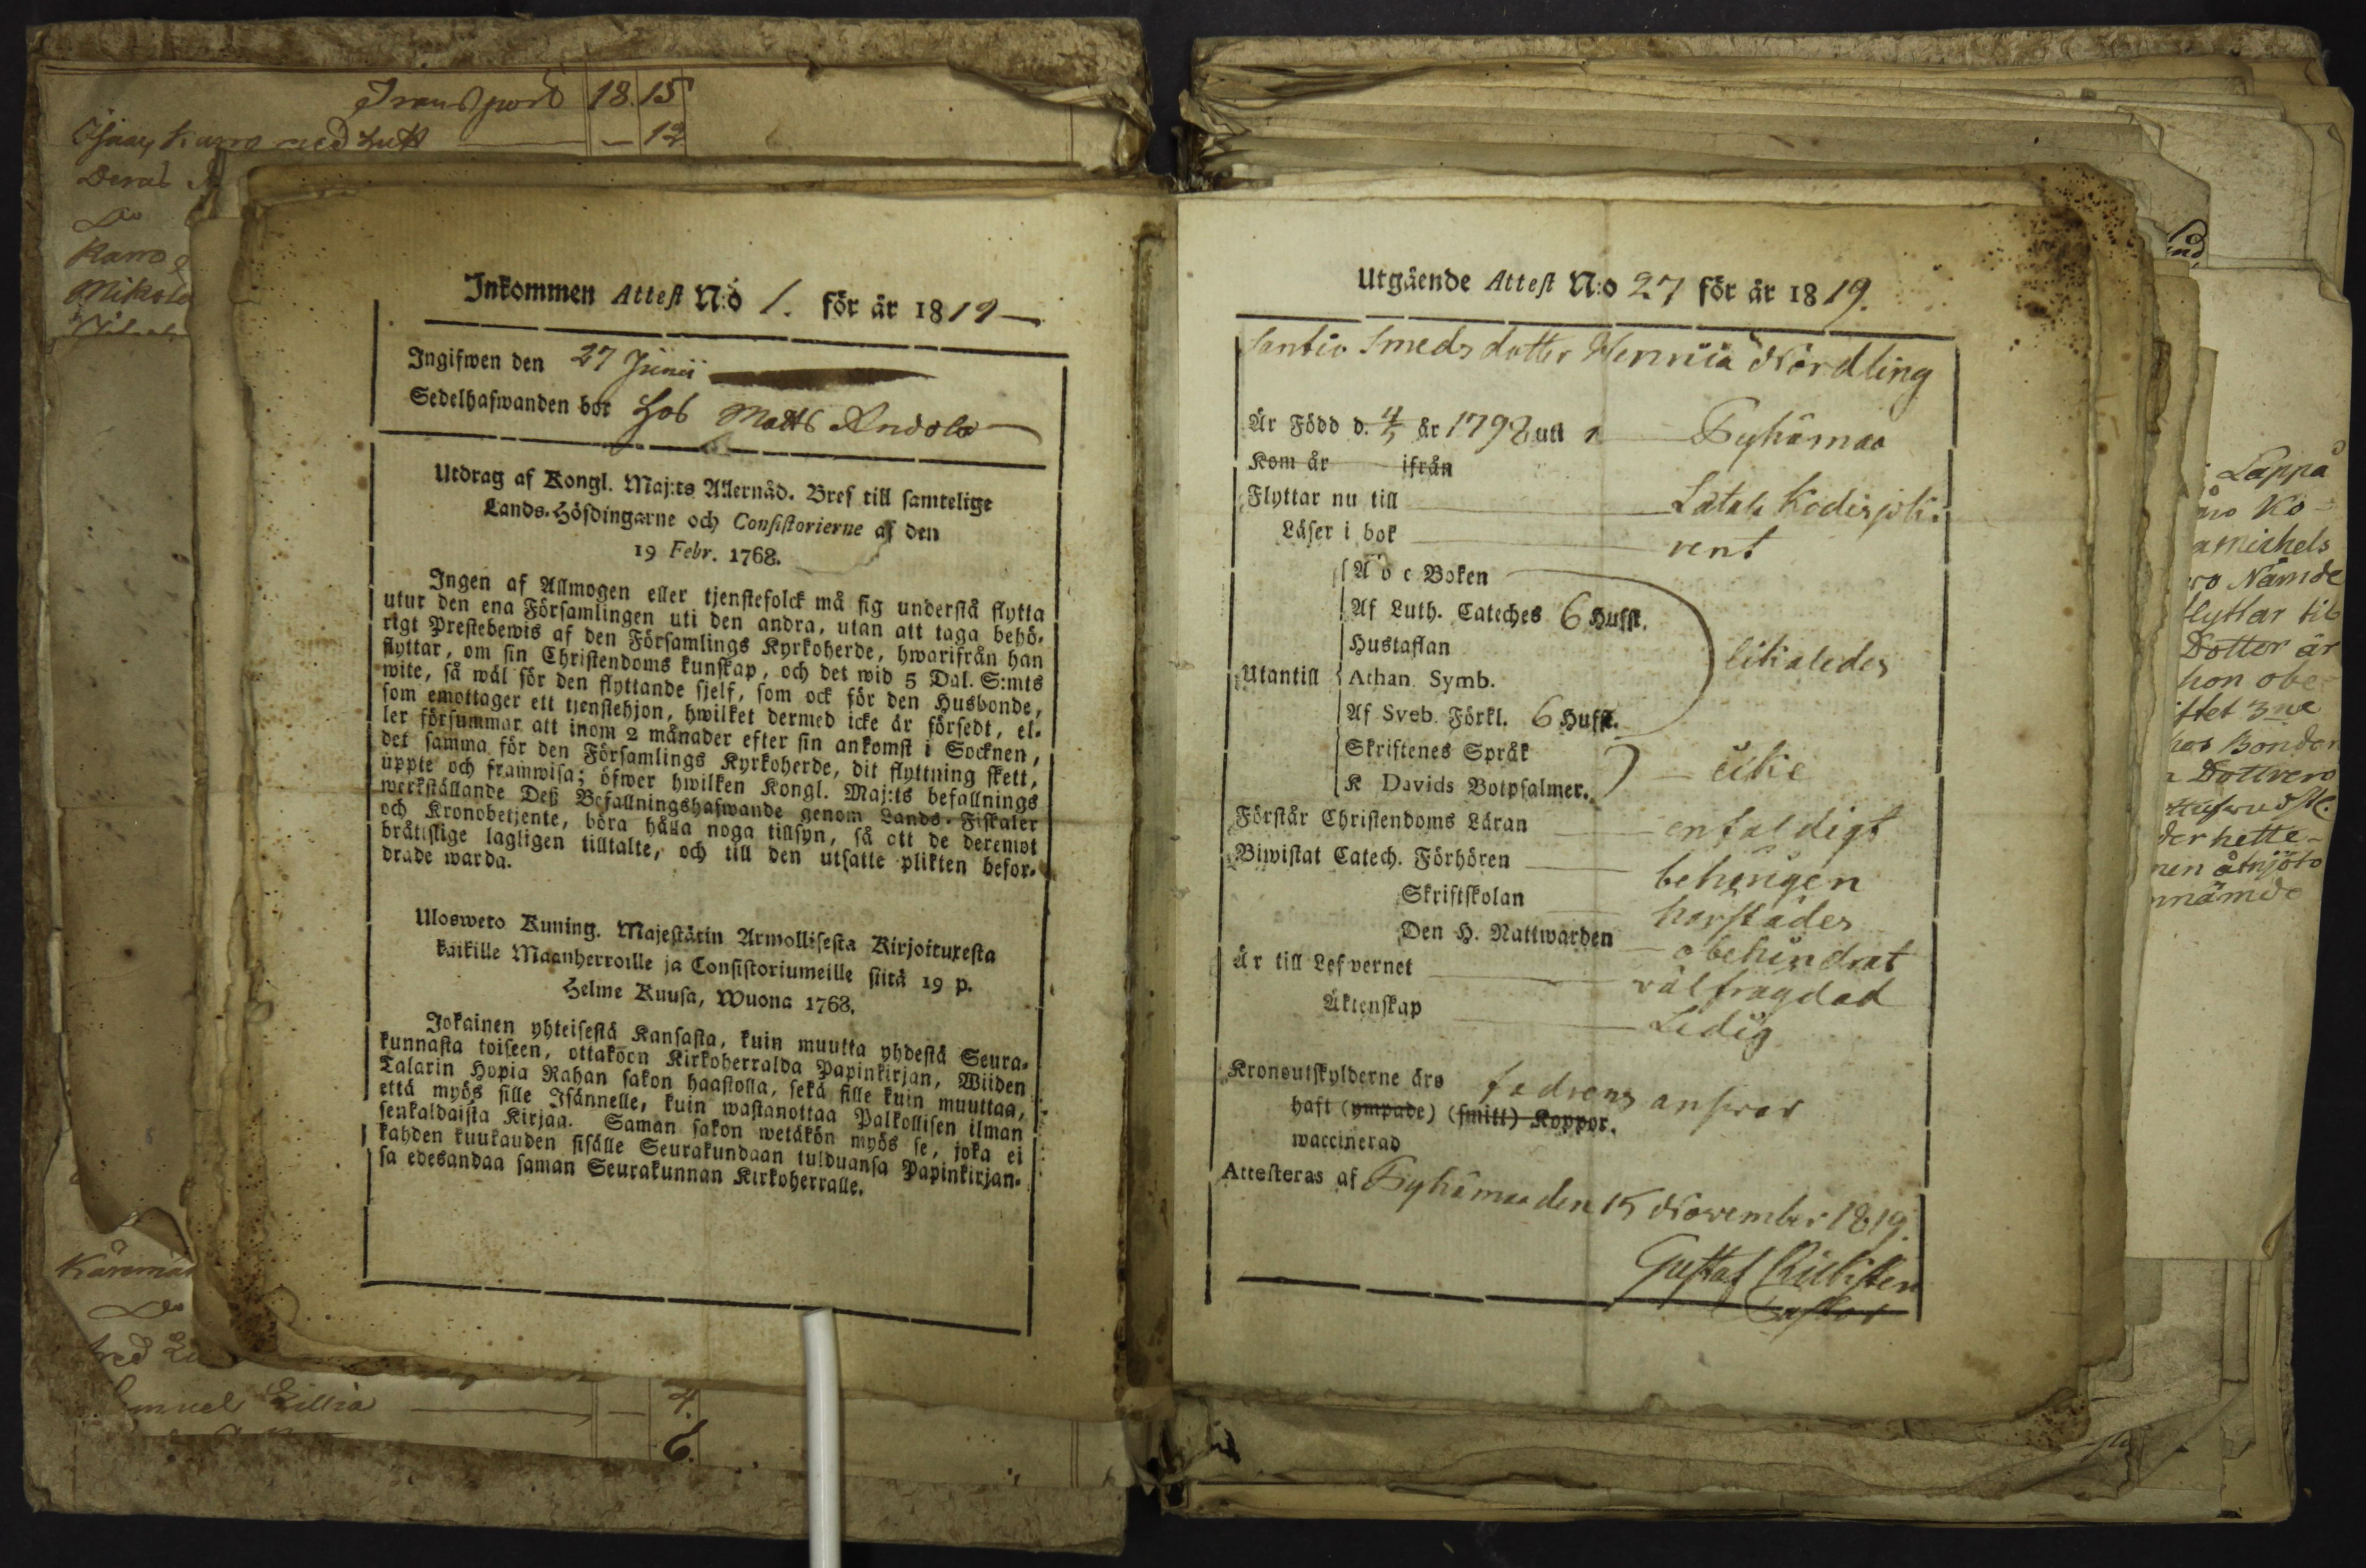 Transport 18. 15
med — 12
Inkommen Attest N:o 1. för år 1819
Ingifwen den 27 Junii
Sedelhafwanden bor hos Matts
Utdrag af Kongl. Maj:ts Allernåd. Bref till samtelige
Lands-Höfdingarne och Consistorierne af den
19 Febr. 1768.
Ingen af Allmogen eller tjenstefolck må sig understå flytta
utur den ena Församlingen uti den andra, utan att taga behö-
rigt Prestebewis af den Församlings Kyrkoherde, hwarifrån han
flyttar, om sin Christendoms kunskap, och det wid 5 Dal. S:mts
wite, så wäl för den flyttande sjelf, som ock för den Husbonde,
som emottager ett tjenstehjon, hwilket dermed icke är försedt, el-
ler försummar att inom 2 månader efter sin ankomst i Socknen,
det samma för den Församlings Kyrkoherde, dit flyttning skett,
uppte och framwisa; öfwer hwilken Kongl. Maj:ts befallnings
werkställande Deß Befallningshafwande genom Lands-Fiskaler
och Kronobetjente, böra hålla noga tillsyn, så att de deremot
bråtislige lagligen tilltalte, och till den utsatte plikten befor-
drade warda.
Ulosweto Kuning. Majestätin Armollisesta Kirjoituxesta
kaikille Maanherroille ja Consistoriumeille siitä 19 p.
Helme Kuusa, Wuona 1768.
Jokainen yhteisestä Kansasta, kuin muutta yhdestä Seura-
kunnasta toiseen, ottakoon Kirkoherralda Papinkirjan, Wiiden
Talarin Hopia Rahan sakon haastolla, sekä sille kuin muuttaa,
että myös sille Isännelle, kuin wastanottaa Palkollisen ilman
senkaldaista Kirjaa. Saman sakon wetäkön myös se, joka ei
kahden kuukauden sisälle Seurakundaan tulduansa Papinkirjan-
sa edesandaa saman Seurakunnan Kirkoherralle.
4.
6.
Utgående Attest N:o 27 för år 1819.
Smeds dotter Nordling
Är Född d. 4/5 år 1798 uti Pyhämaa
Kom år ifrån
Flyttar nu till
Läser i bok rent
A b c Boken
Af Luth. Cateches 6 Hufst.
Hustaflan
Utantill Athan. Symb. likaledes
Af Sveb. Förkl. 6 Hufst.
Skriftenes Språk
K Davids Botpsalmer.
Förstår Christendoms Läran enfaldigt
Biwistat Catech. Förhören behörigen
Skriftskolan härstädes
Den H. Nattwarden obehindrat
Är till Lefvernet välfrägdad
Äktenskap Ledig
Kronoutskylderne äro fadrens answar
haft (ympade) (smitt) Koppor.
waccinerad
Attesteras af Pyhämaa den 15 November 1819.
Gustaf
Pastor
Lappå
Ko-
Michels
Nämde
flyttar til
Dotter är
hon obe-
3ne
Bonden
nämde